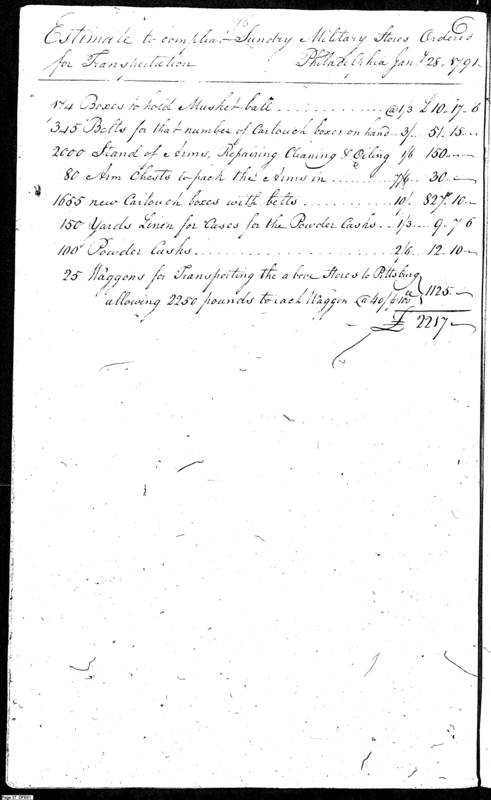 16
6
Estimate to compleat Sundry Military Stores Ordered
for Transportation Philadelphia Jany 28. 1791.
174 Boxes to hold Musket ball . . . . . . . . . . . . . @1/3 £10..17..6
345 Belts for that number of Cartouch boxes on hand... 3/. . 51..15...
2000 Stand of Arms, Repairing Cleaning & Oiling 1/6 150..—
80 Arm Chests to pack the Arms in . . . . . . . . . 7/6.. 30..—
1655 new Cartouch boxes with belts . . . . . . . . . 10/. 827..10..—
150 Yards Linen for Cases for the Powder Casks... 1/3... 9..7 6
100 Powder Casks . . . . . . . . . . . . . . . . . . . 2/6. 12..10—
25 Waggons for Transporting the above Stores to Pittsburg
allowing 2250 pounds to each Waggon @ 40/ 100 } 1125..—
£ 2217—